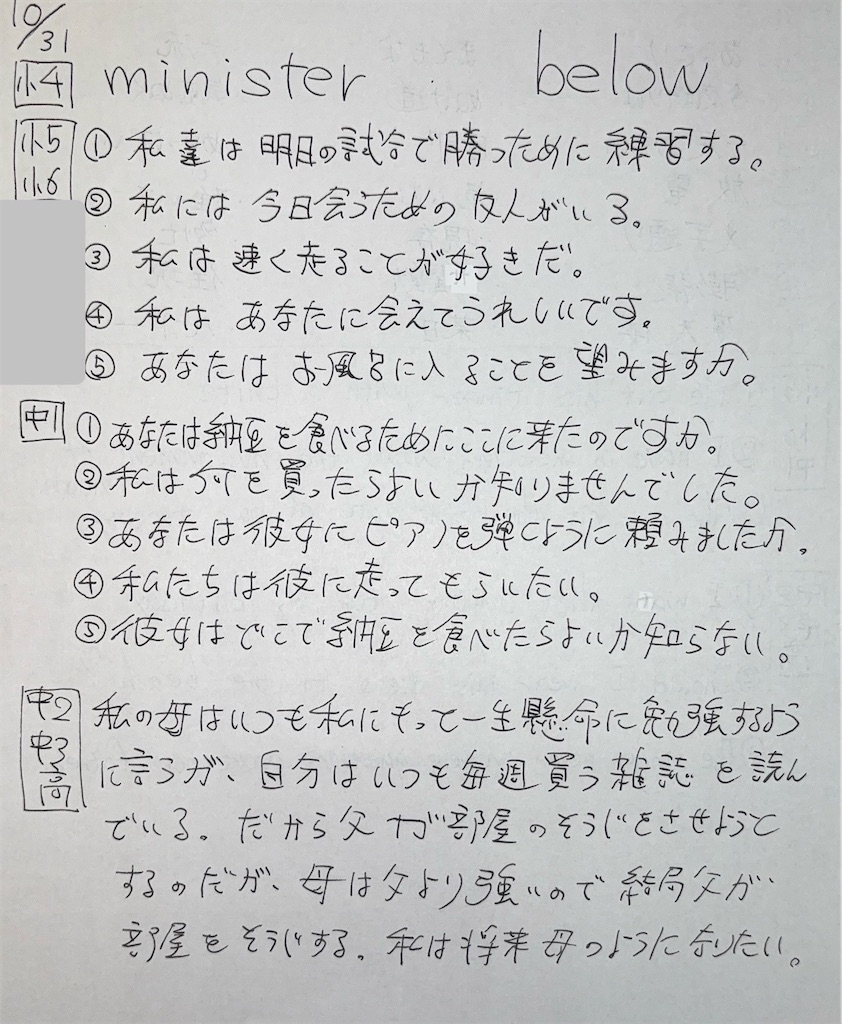 10/31
小4 minister below
小5 ① 私達は明日の試合で勝つために練習する。
小6 ② 私には今日会うための友人がいる。
③ 私は速く走ることが好きだ。
④ 私はあなたに会えてうれしいです。
⑤ あなたはお風呂に入ることを望みますか。
中1 ① あなたは納豆を食べるためにここに来たのですか。
② 私は何を買ったらよいか知りませんでした。
③ あなたは彼女にピアノを弾くように頼みましたか。
④ 私たちは彼に走ってもらいたい。
⑤ 彼女はどこで納豆を食べたらよいか知らない。
中2 私の母はいつも私にもっと一生懸命に勉強するよう
中3 に言うが、自分はいつも毎週買う雑誌を読ん
高 でいる。だから父が部屋のそうじをさせようと
するのだが、母は父より強いので結局父が
部屋をそうじする。私は将来母のようになりたい。